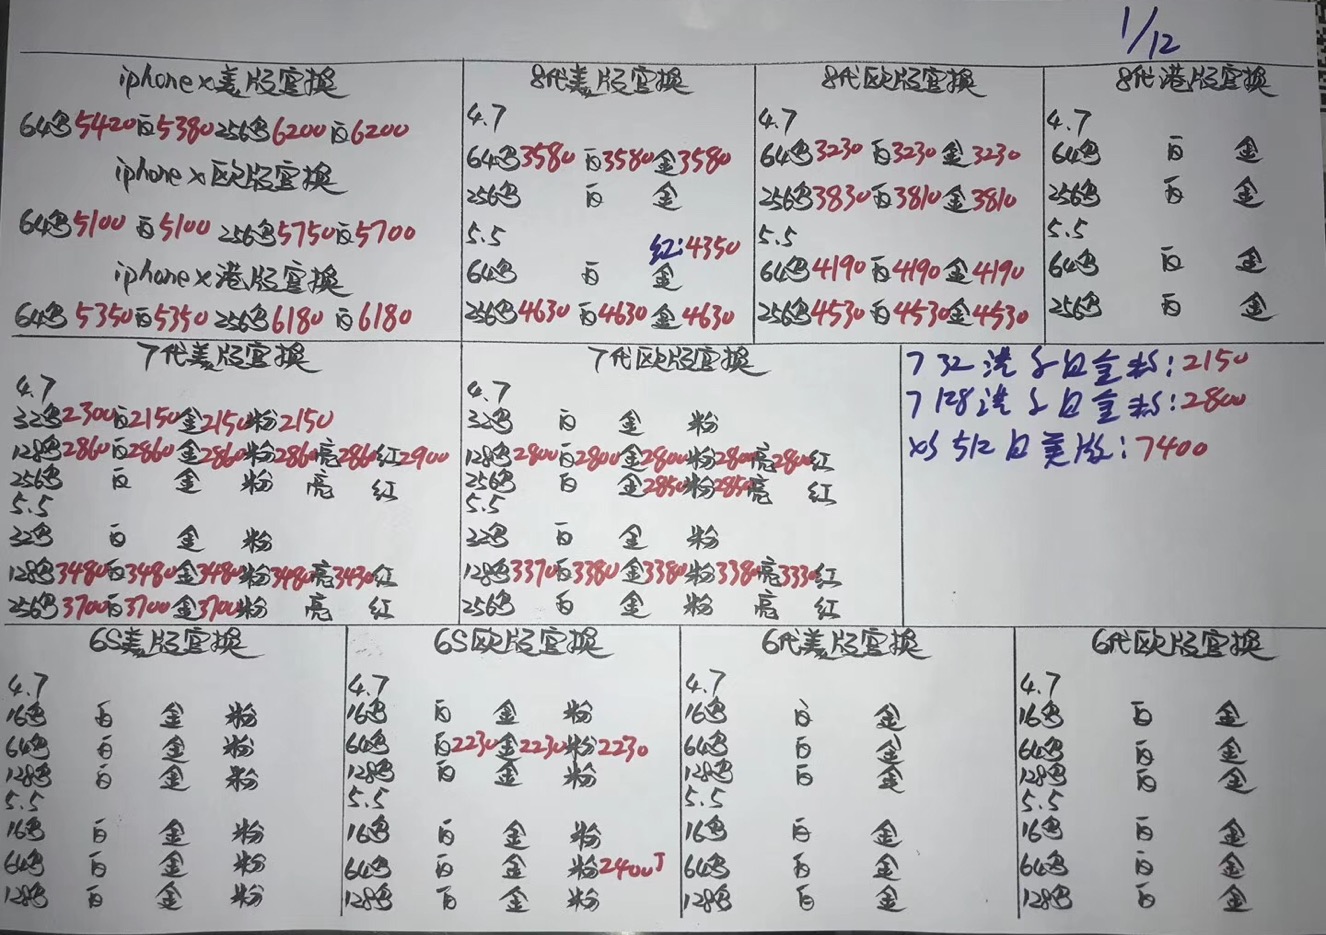 1/12
iphone x美版官换
64黑5420白5380 256黑6200白6200
iphone x欧版官换
64黑5100 白5100 256黑5750白5700
iphone x港版官换
64黑5350白5350 256黑6180 白6180
8代美版官换
4.7
64黑3580 白3580金3580
256黑 白 金
5.5 红:4350
64黑 白 金
256黑4630 白4630 金4630
8代欧版官换
4.7
64黑3230 白3230 金3230
256黑3830白3810金3810
5.5
64黑4190白4190金4190
256黑4530白4530金4530
8代港版官换
4.7
64黑 白 金
256黑 白 金
5.5
64黑 白 金
256黑 白 金
7代美版官换
4.7
32黑2300白2150金2150粉2150
128黑2860白2860金2860粉2860亮2860红2900
256黑 白 金 粉 亮 红
5.5
32黑 白 金 粉
128黑3480白3480金3480粉3480亮3430红
256黑3700白3700金3700粉 亮 红
7代欧版官换
4.7
32黑 白 金 粉
128黑2800白2800金2800粉2800亮2800红
256黑 白 金2850粉2850亮 红
5.5
32黑 白 金 粉
128黑3370白3380金3380粉3380亮3330红
256黑 白 金 粉 亮 红
7 32港 白金粉:2150
7 128港 白金粉:2800
XS 512白美版:7400
6S美版官换
4.7
16黑 白 金 粉
64黑 白 金 粉
128黑 白 金 粉
5.5
16黑 白 金 粉
64黑 白 金 粉
128黑 白 金 粉
6S欧版官换
4.7
16黑 白 金 粉
64黑 白2230金2230粉2230
128黑 白 金 粉
5.5
16黑 白 金 粉
64黑 白 金 粉2400J
128黑 白 金 粉
6代美版官换
4.7
16黑 白 金
64黑 白 金
128黑 白 金
5.5
16黑 白 金
64黑 白 金
128黑 白 金
6代欧版官换
4.7
16黑 白 金
64黑 白 金
128黑 白 金
5.5
16黑 白 金
64黑 白 金
128黑 白 金